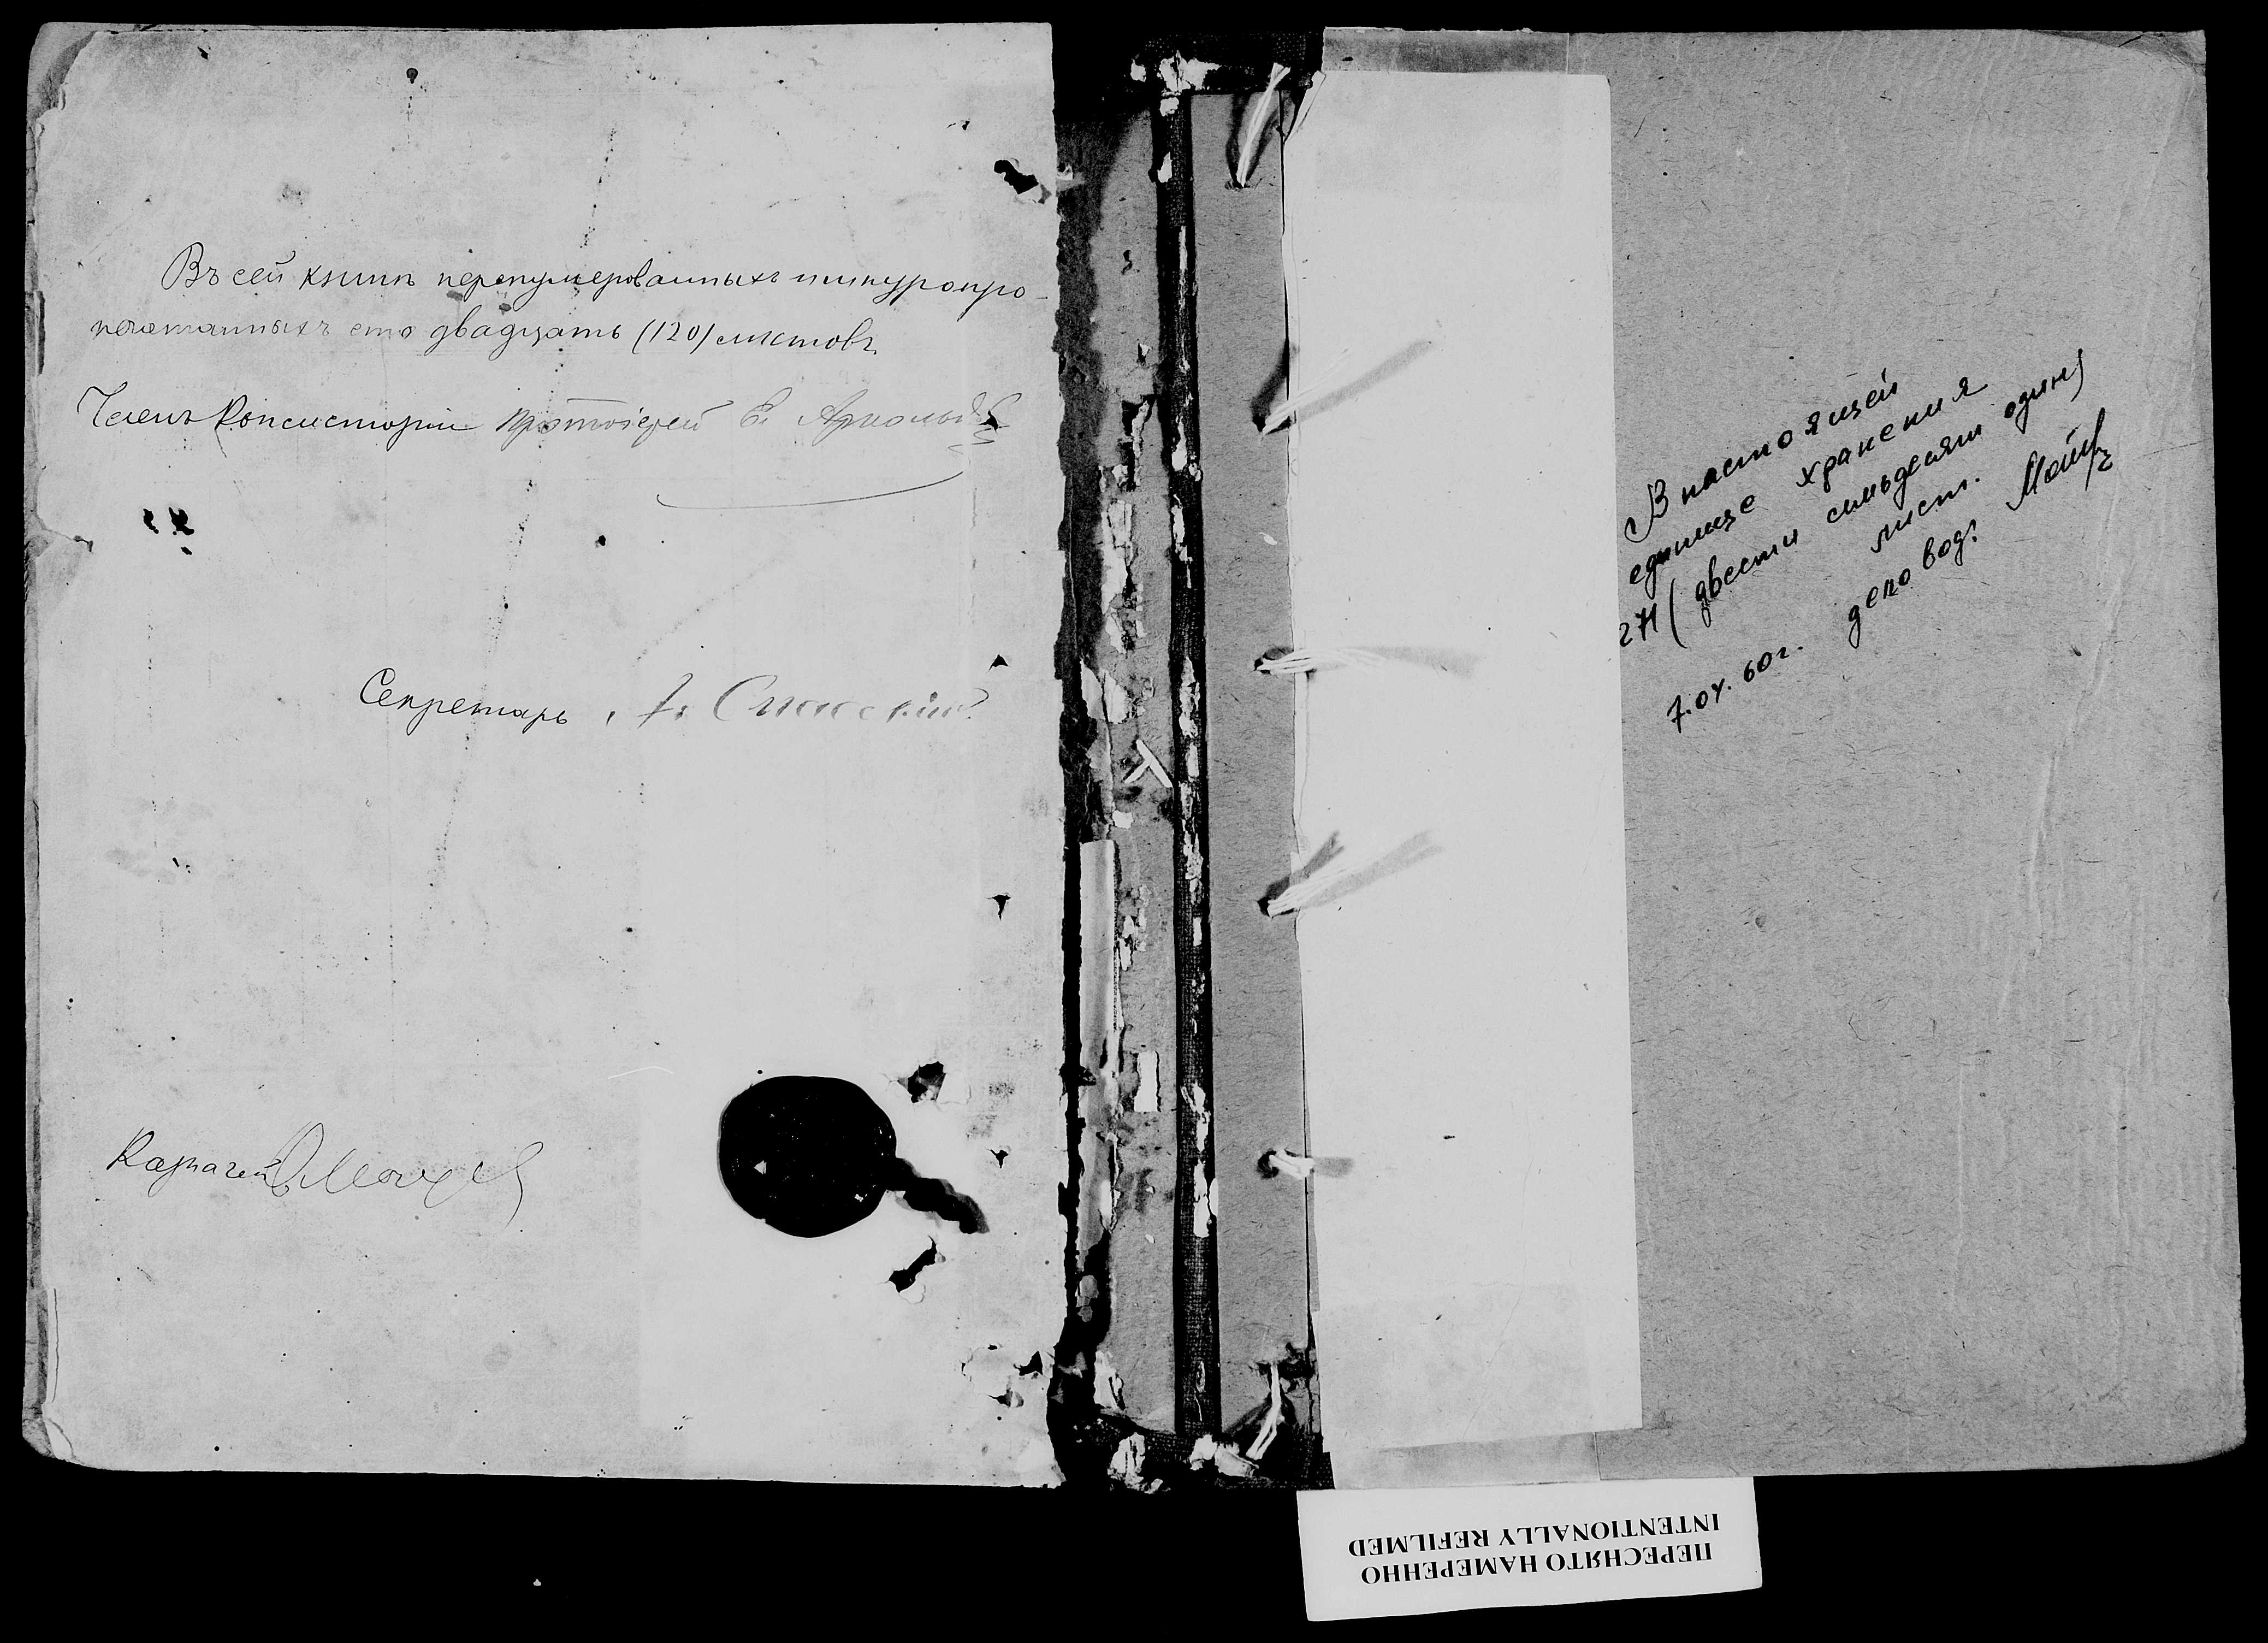 Въ сей книгѣ перенумерованныхъ и шнуропро-
печатанныхъ сто двадцать (120) листовъ.
Членъ Консисторіи протоіерей Е. Арнольдовъ
Секретарь А. Спасскій
Казначей
В настоящей
единице хранения
271 (двести семьдесят один)
лист.
7.04.60г. деловод:
ПЕРЕСНЯТО НАМЕРЕННО
INTENTIONALLY REFILMED